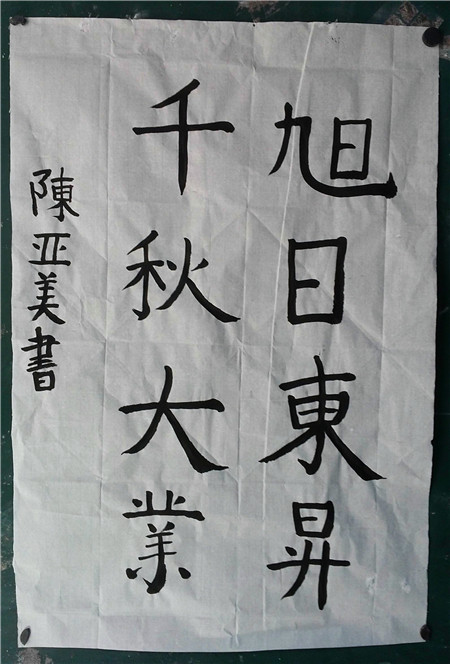 旭日東昇
千秋大業
陳亚美書